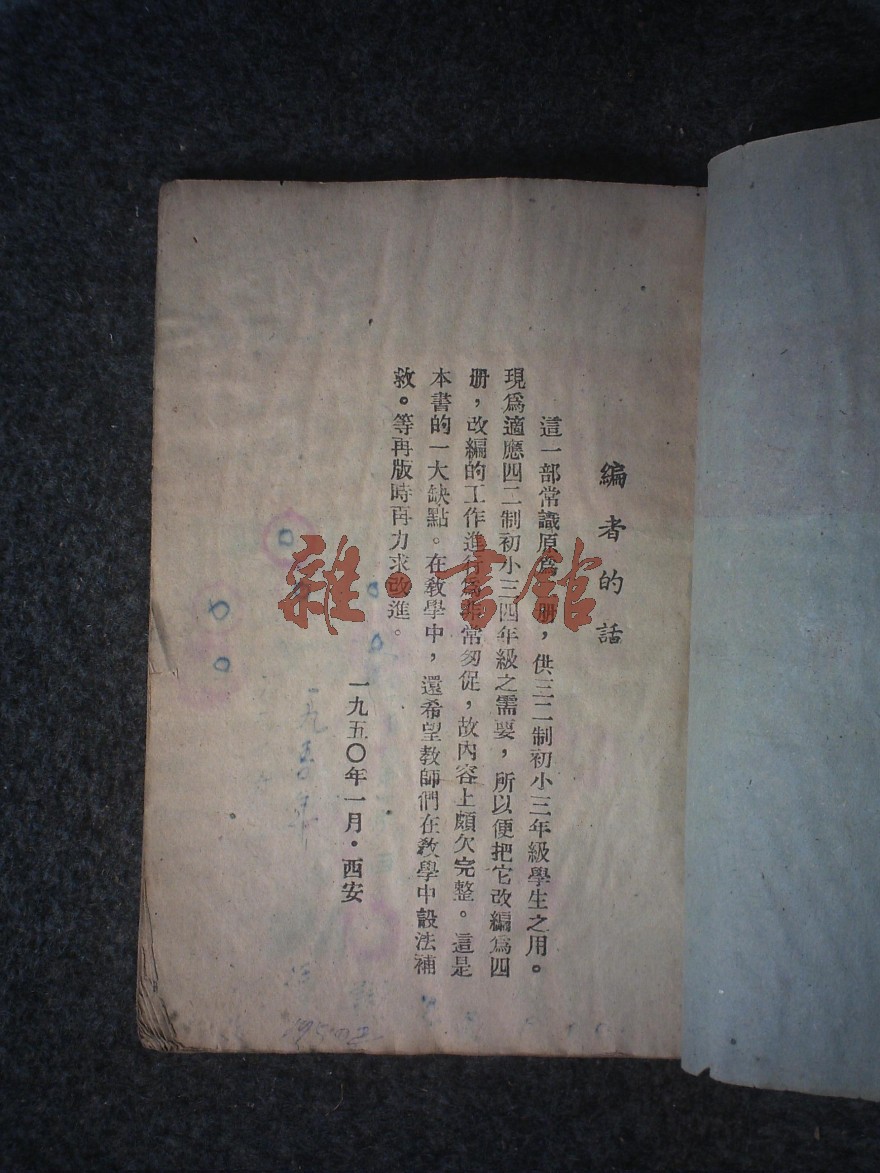 編者的話
這一部常識原爲册,供三二制初小三年級學生之用。
現爲適應四二制初小三四年級之需要,所以便把它改編爲四
册,改編的工作進行爲非常匆促,故內容上頗欠完整。這是
本書的一大缺點。在教學中,還希望教師們在教學中設法補
救。等再版時再力求改進。
一九五〇年一月·西安
雜·書館
一九五〇年